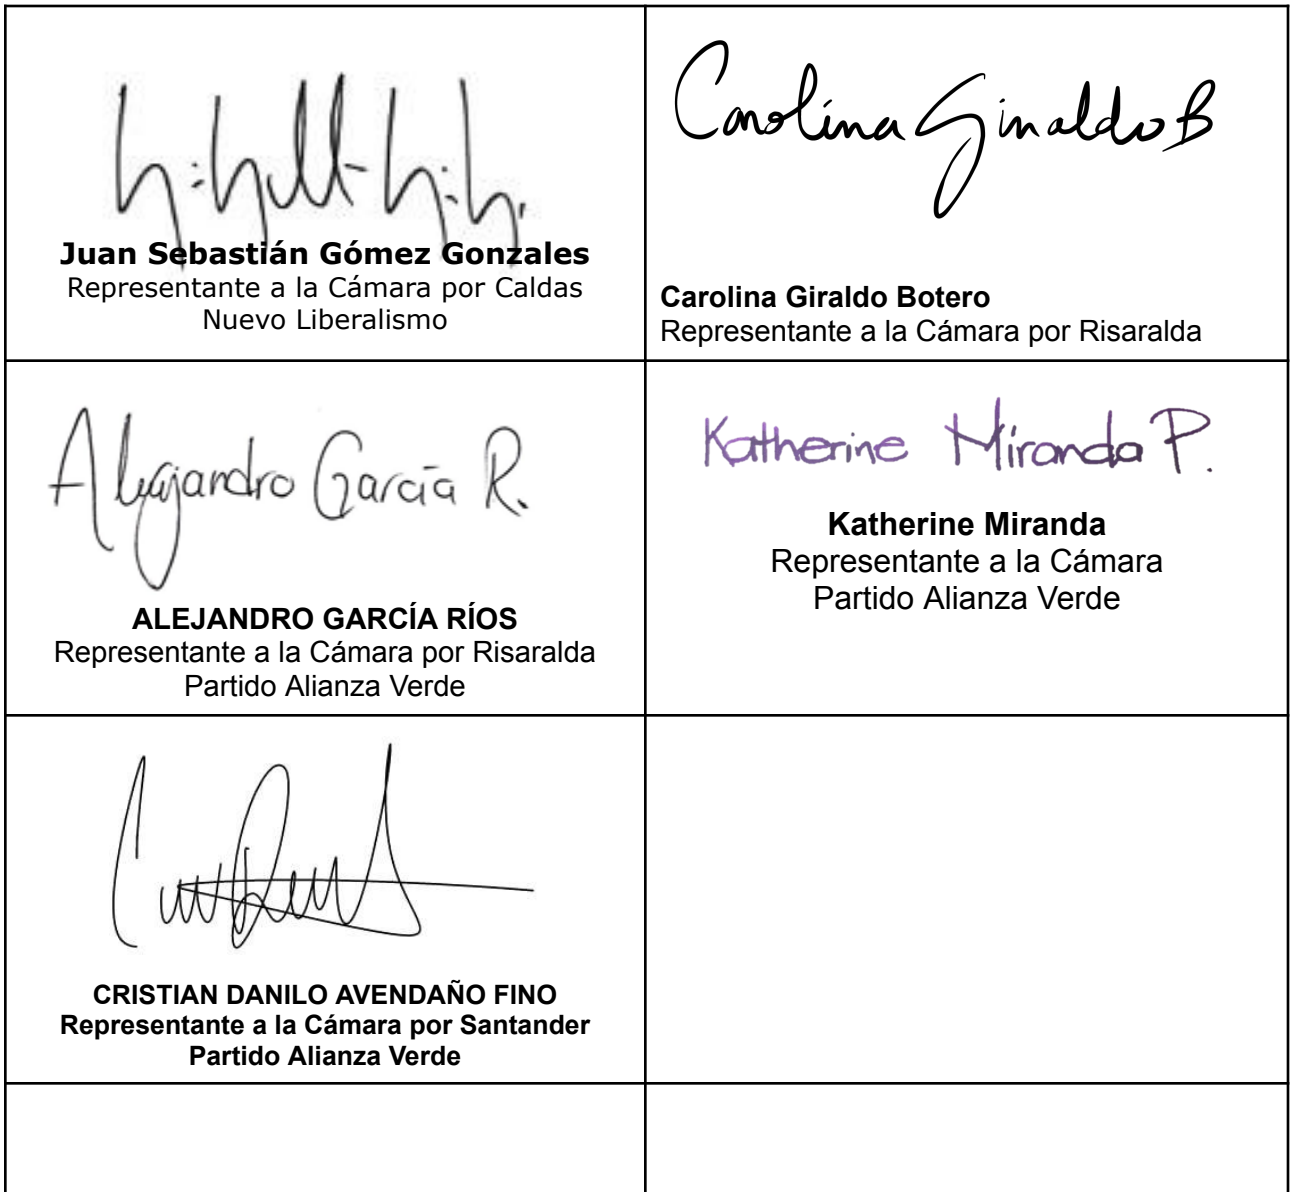 Juan Sebastián Gómez Gonzales
Representante a la Cámara por Caldas
Nuevo Liberalismo
Carolina Giraldo B
Carolina Giraldo Botero
Representante a la Cámara por Risaralda
Alejandro García R.
ALEJANDRO GARCÍA RÍOS
Representante a la Cámara por Risaralda
Partido Alianza Verde
Katherine Miranda P.
Katherine Miranda
Representante a la Cámara
Partido Alianza Verde
CRISTIAN DANILO AVENDAÑO FINO
Representante a la Cámara por Santander
Partido Alianza Verde